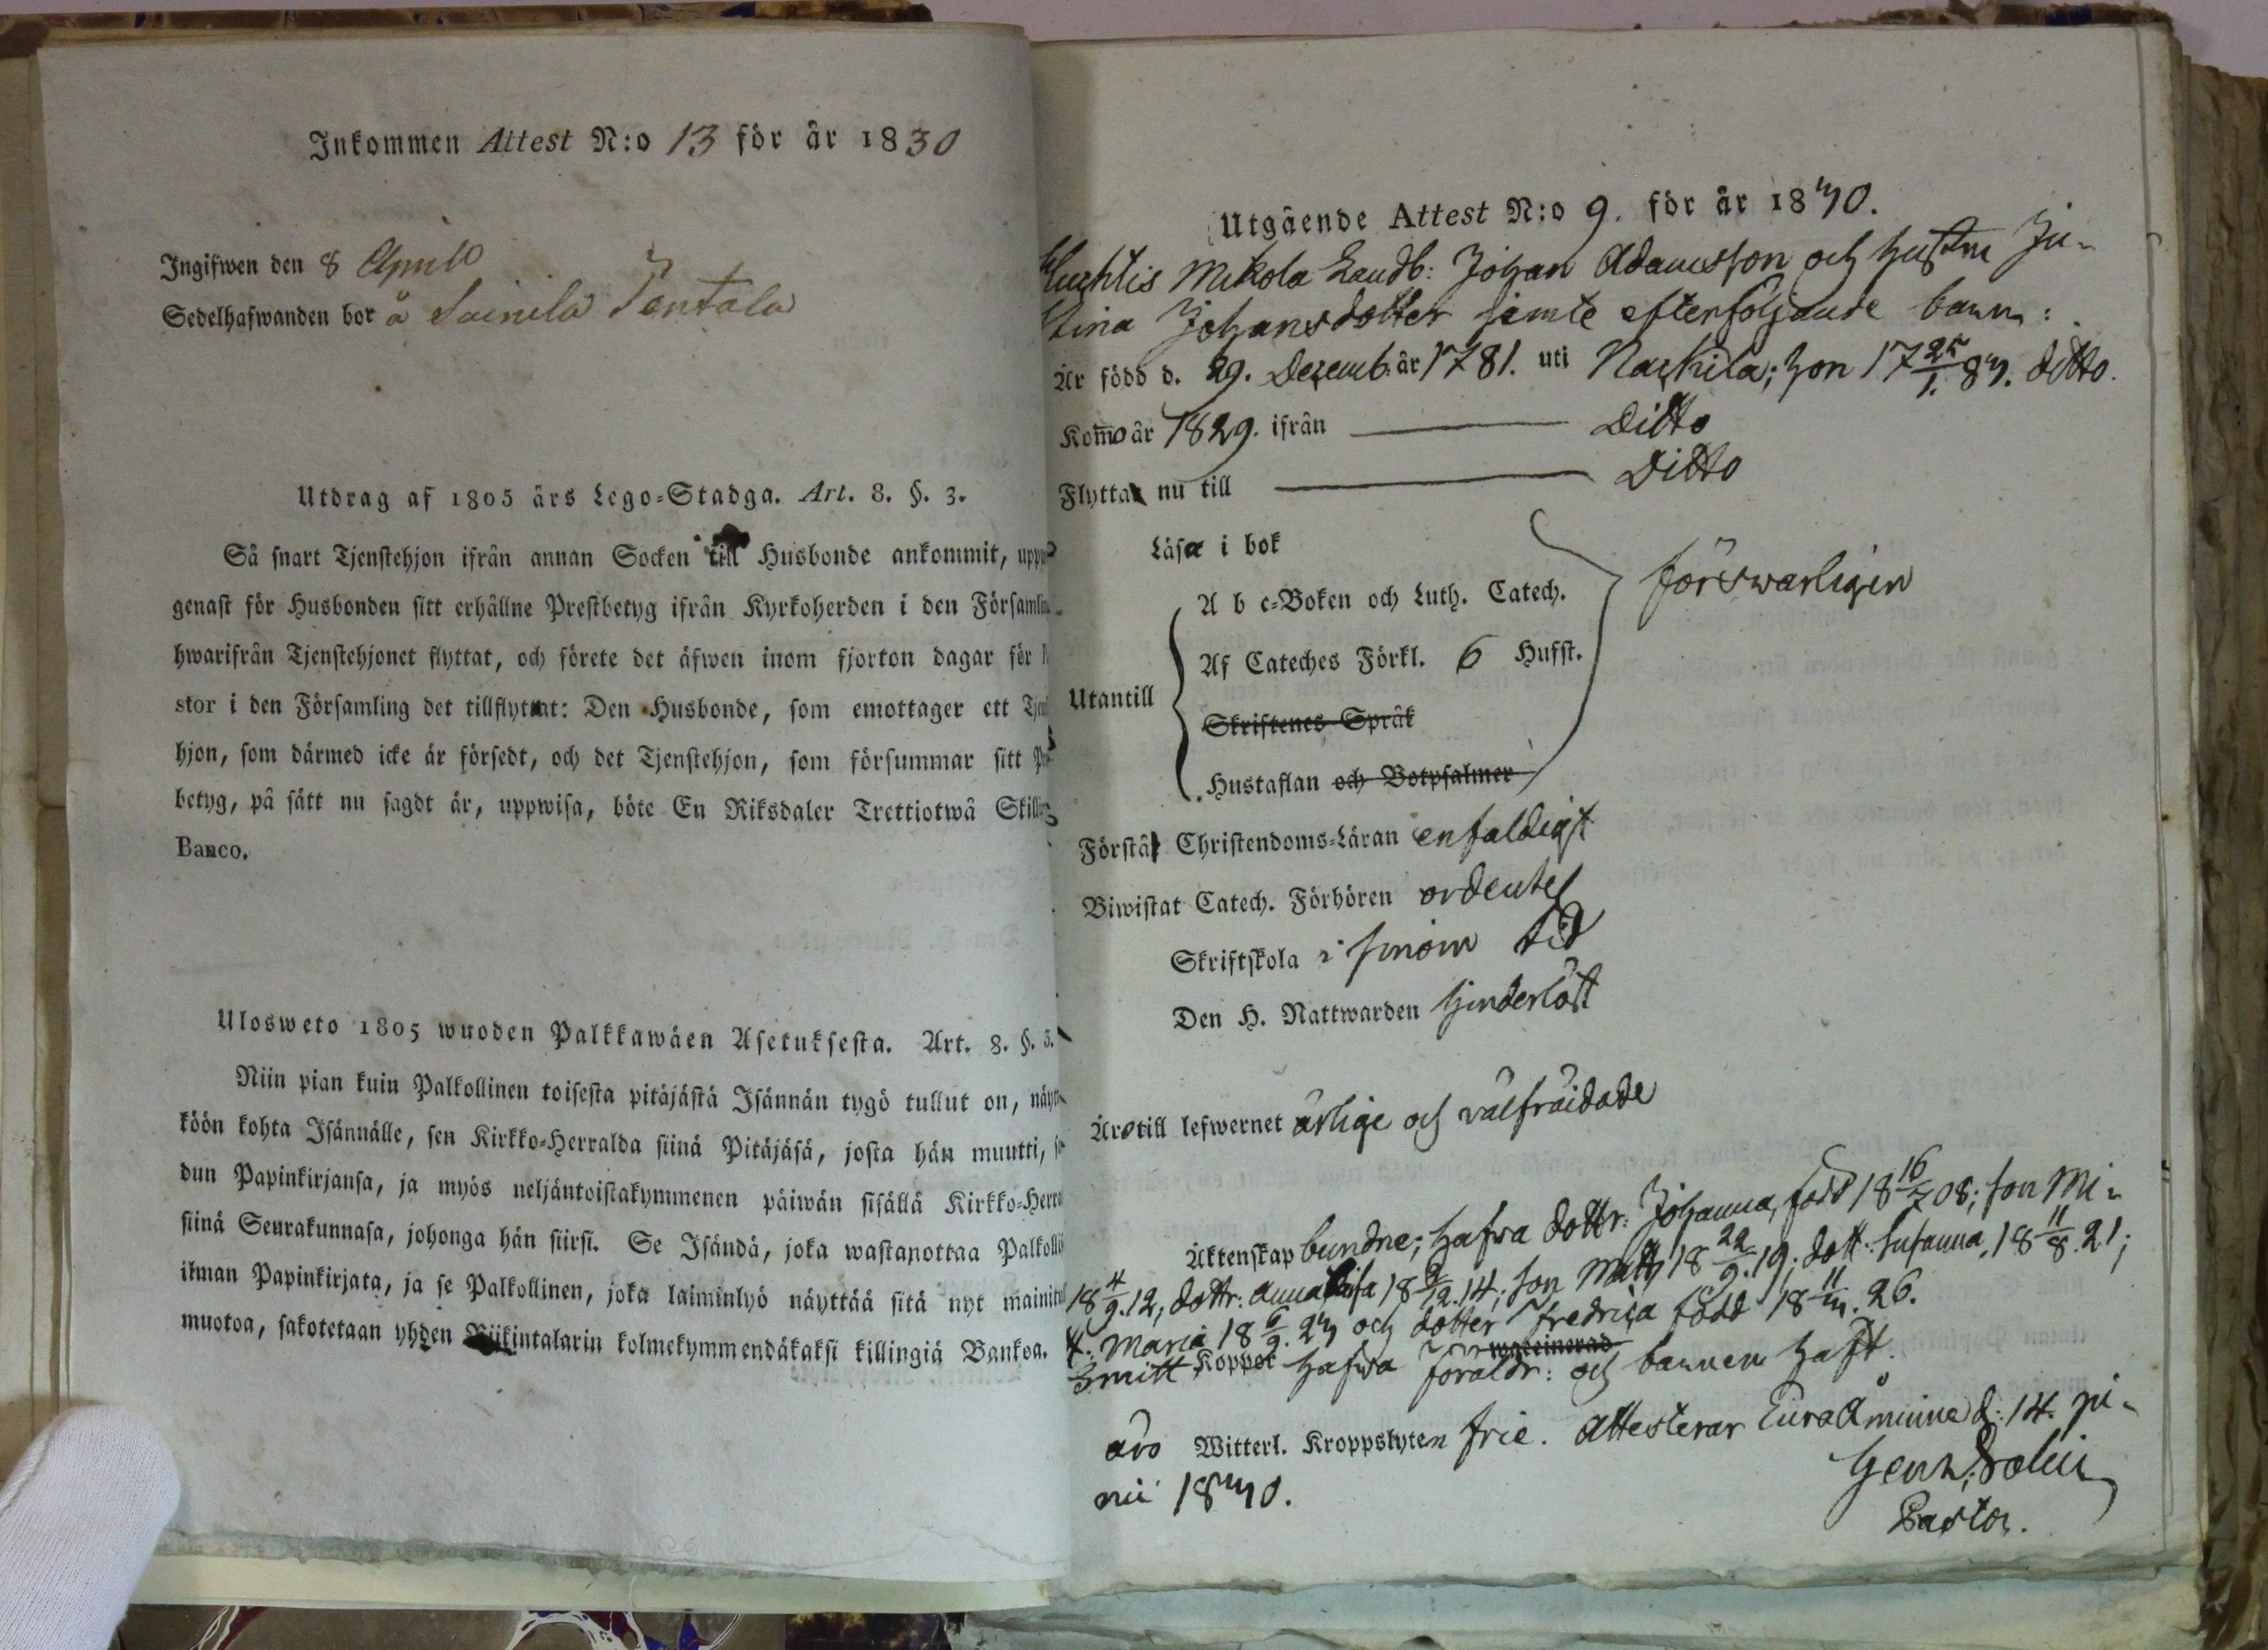 Inkommen Attest N:o 13 för år 1830
Ingifwen den 8 April
Sedelhafwanden bor å Soinila Pentala
Utdrag af 1805 års Lego-Stadga. Art. 8. §. 3.
Så snart Tjenstehjon ifrån annan Socken till Husbonde ankommit,
genast för Husbonden sitt erhållne Prestbetyg ifrån Kyrkoherden i den
hwarifrån Tjenstehjonet flyttat, och förete det äfwen inom fjorton dagar för
stor i den Församling det tillflyttat: Den Husbonde, som emottager ett
hjon, som därmed icke är försedt, och det Tjenstehjon, som försummar sitt
betyg, på sätt nu sagdt är, uppwisa, böte En Riksdaler Trettiotwå
Banco.
Ulosweto 1805 wuoden Palkkawäen Asetuksesta. Art. 8. §. 3.
Niin pian kuin Palkollinen toisesta pitäjästä Isännän tygö tullut on,
köön kohta Isännälle, sen Kirkko-Herralda siinä Pitäjäsä, josta hän muutti,
dun Papinkirjansa, ja myös neljäntoistakymmenen päiwän sisällä
siinä Seurakunnasa, johonga hän siirsi. Se Isändä, joka wastanottaa
ilman Papinkirjata, ja se Palkollinen, joka laiminlyö näyttää sitä nyt
muotoa, sakotetaan yhden Riikintalarin kolmekymmendäkaksi killingiä Bankoa.
Utgående Attest N:o 9. för år 1830.
Mikola Landb: Johan Adamsson och hustru Ju-
stina Johansdotter samte efterföljande barn:
Är född d. 29. Decemb. år 1781. uti Nackila; hon 17 25/1. 83. ditto.
Kommo år 1829. ifrån Ditto
Flytta nu till Ditto
Läsa i bok
A b c-Boken och Luth. Catech. förswarligen
Af Cateches Förkl. 6 Hufst.
Utantill
Skriftenes Språk
Hustaflan och Botpsalmer
Förstå Christendoms-Läran enfaldigt
Biwistat Catech. Förhören ordentel
Skriftskola i sinom tid
Den H. Nattwarden hinderlöst
Äro till lefwernet ärlige och välfräidade
Äktenskap bundne; hafva dottr: Johanna, född 18 16/7 08; son Mi-
18 4/9. 12, dottr: Anna Lisa 18 /12. 14; son Matts 18 22/9. 19; dott: Susanna, 18 11/8. 21;
Maria 18 6/9. 23 och dotter Fredrica född 18 11/3. 26.
Smitt Koppor hafva föräldr: och barnen haft.
waccinerad
äro Witterl. Kroppslyten frie. Attesterar Eura Åminne d: 14. ju-
nii 1830.
Pastor.